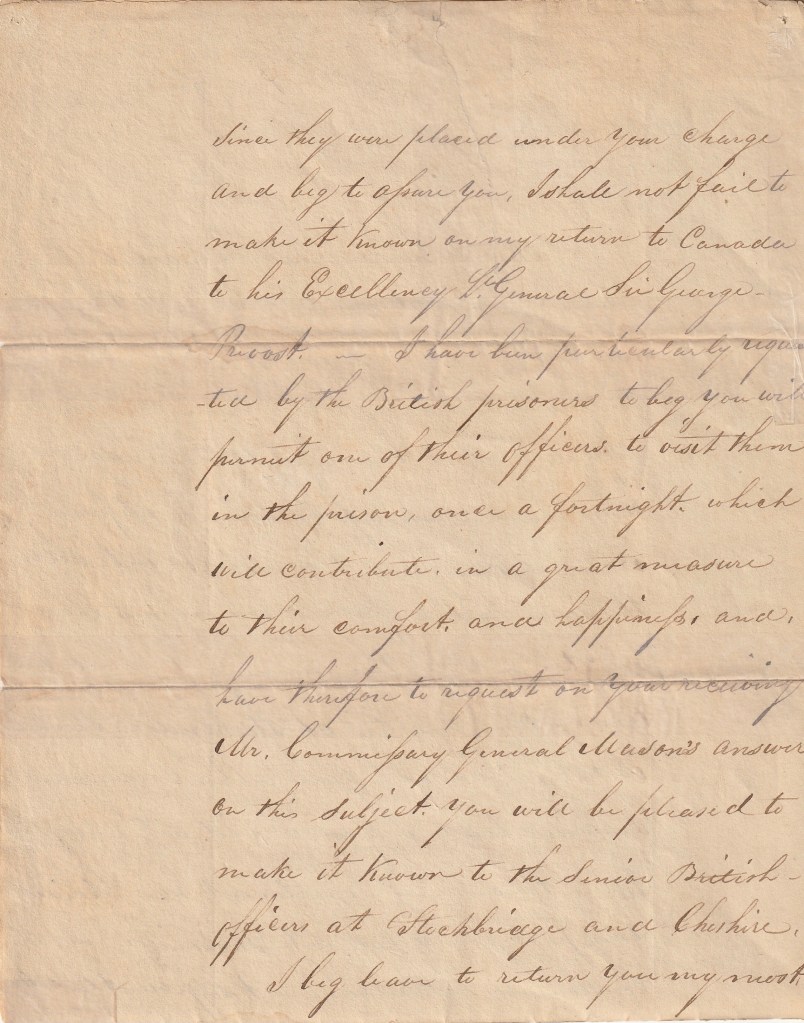 since they were placed under your charge
and beg to assure you, I shall not fail to
make it known on my return to Canada
to his Excellency Lt. General Sir George-
Prevost. — I have been particularly reques
-ted by the British prisoners to beg you will
permit one of their officers. to visit them
in the prison, once a fortnight. which
will contribute. in a great measure
to their comfort. and happiness. and.
have therefore to request on your receiving
Mr. Commissary General Mason's answer
on this subject. you will be pleased to
make it known to the Senior British-
officers at Stockbridge and Cheshire.
I beg leave to return you my most.